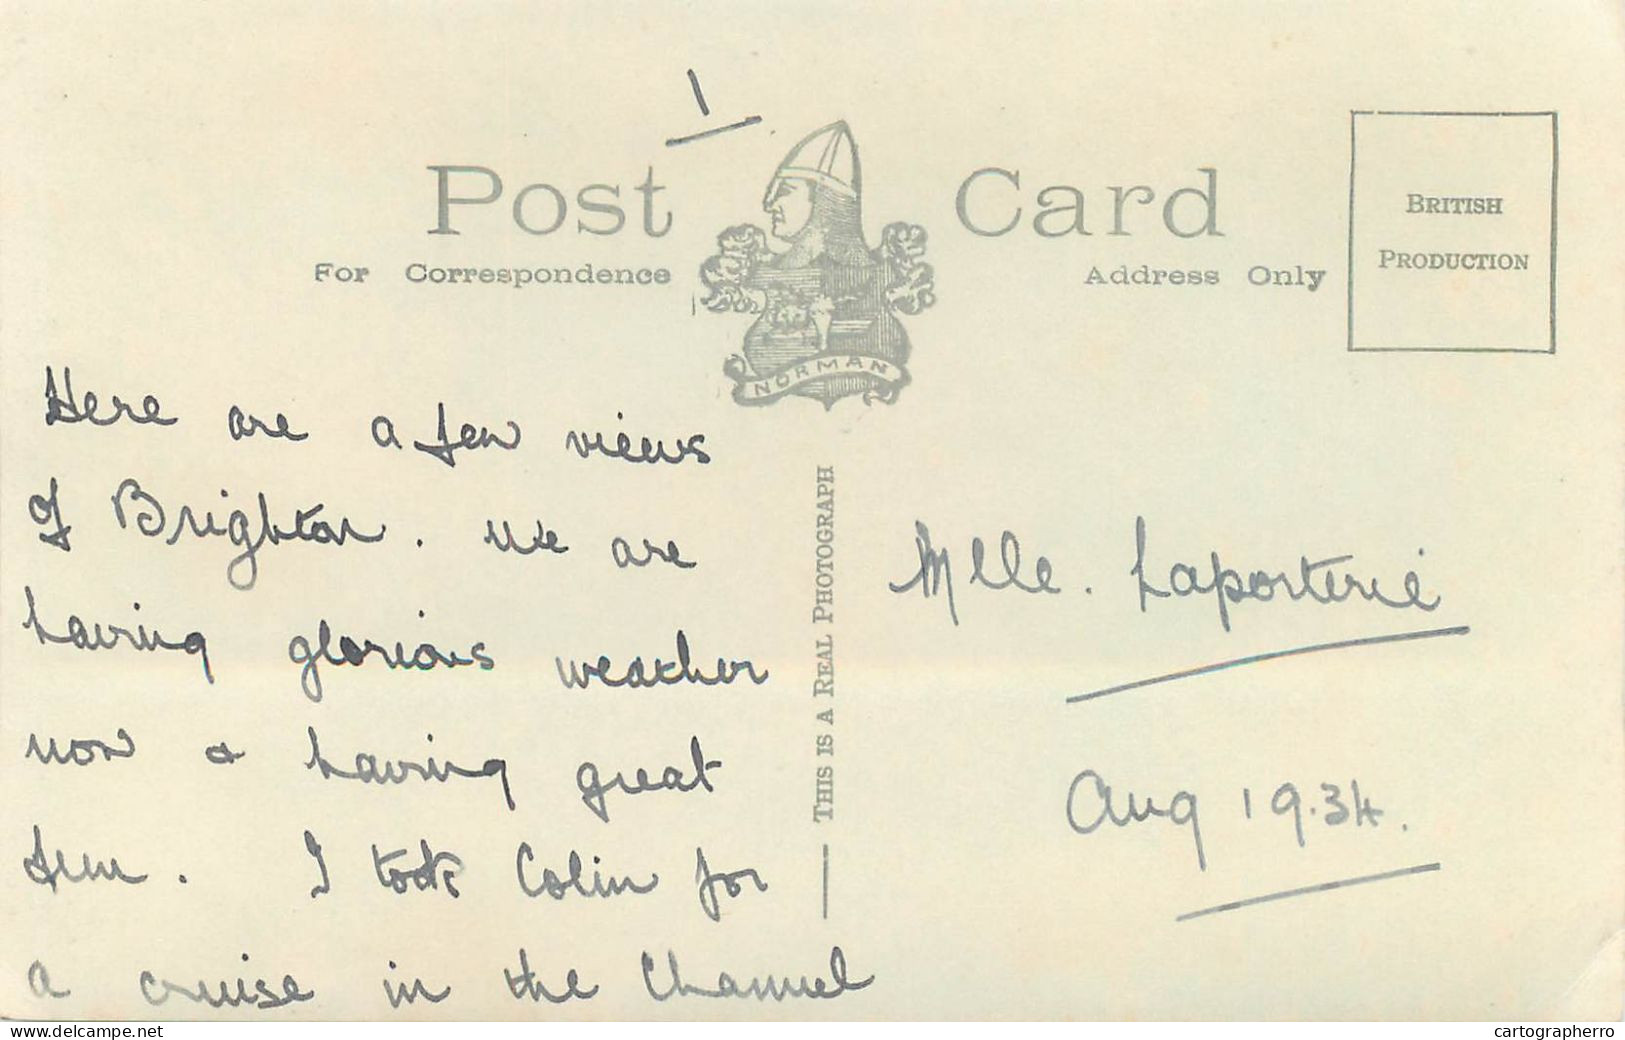 1
Post Card
For Correspondence
Address Only
BRITISH
PRODUCTION
NORMAN
THIS IS A REAL PHOTOGRAPH
Here are a few views
of Brighton. We are
having glorious weather
now & having great
fun. I took Colin for
a cruise in the Channel
Mlle. Laporterie
Aug 19.34.
www.delcampe.net
cartographerro